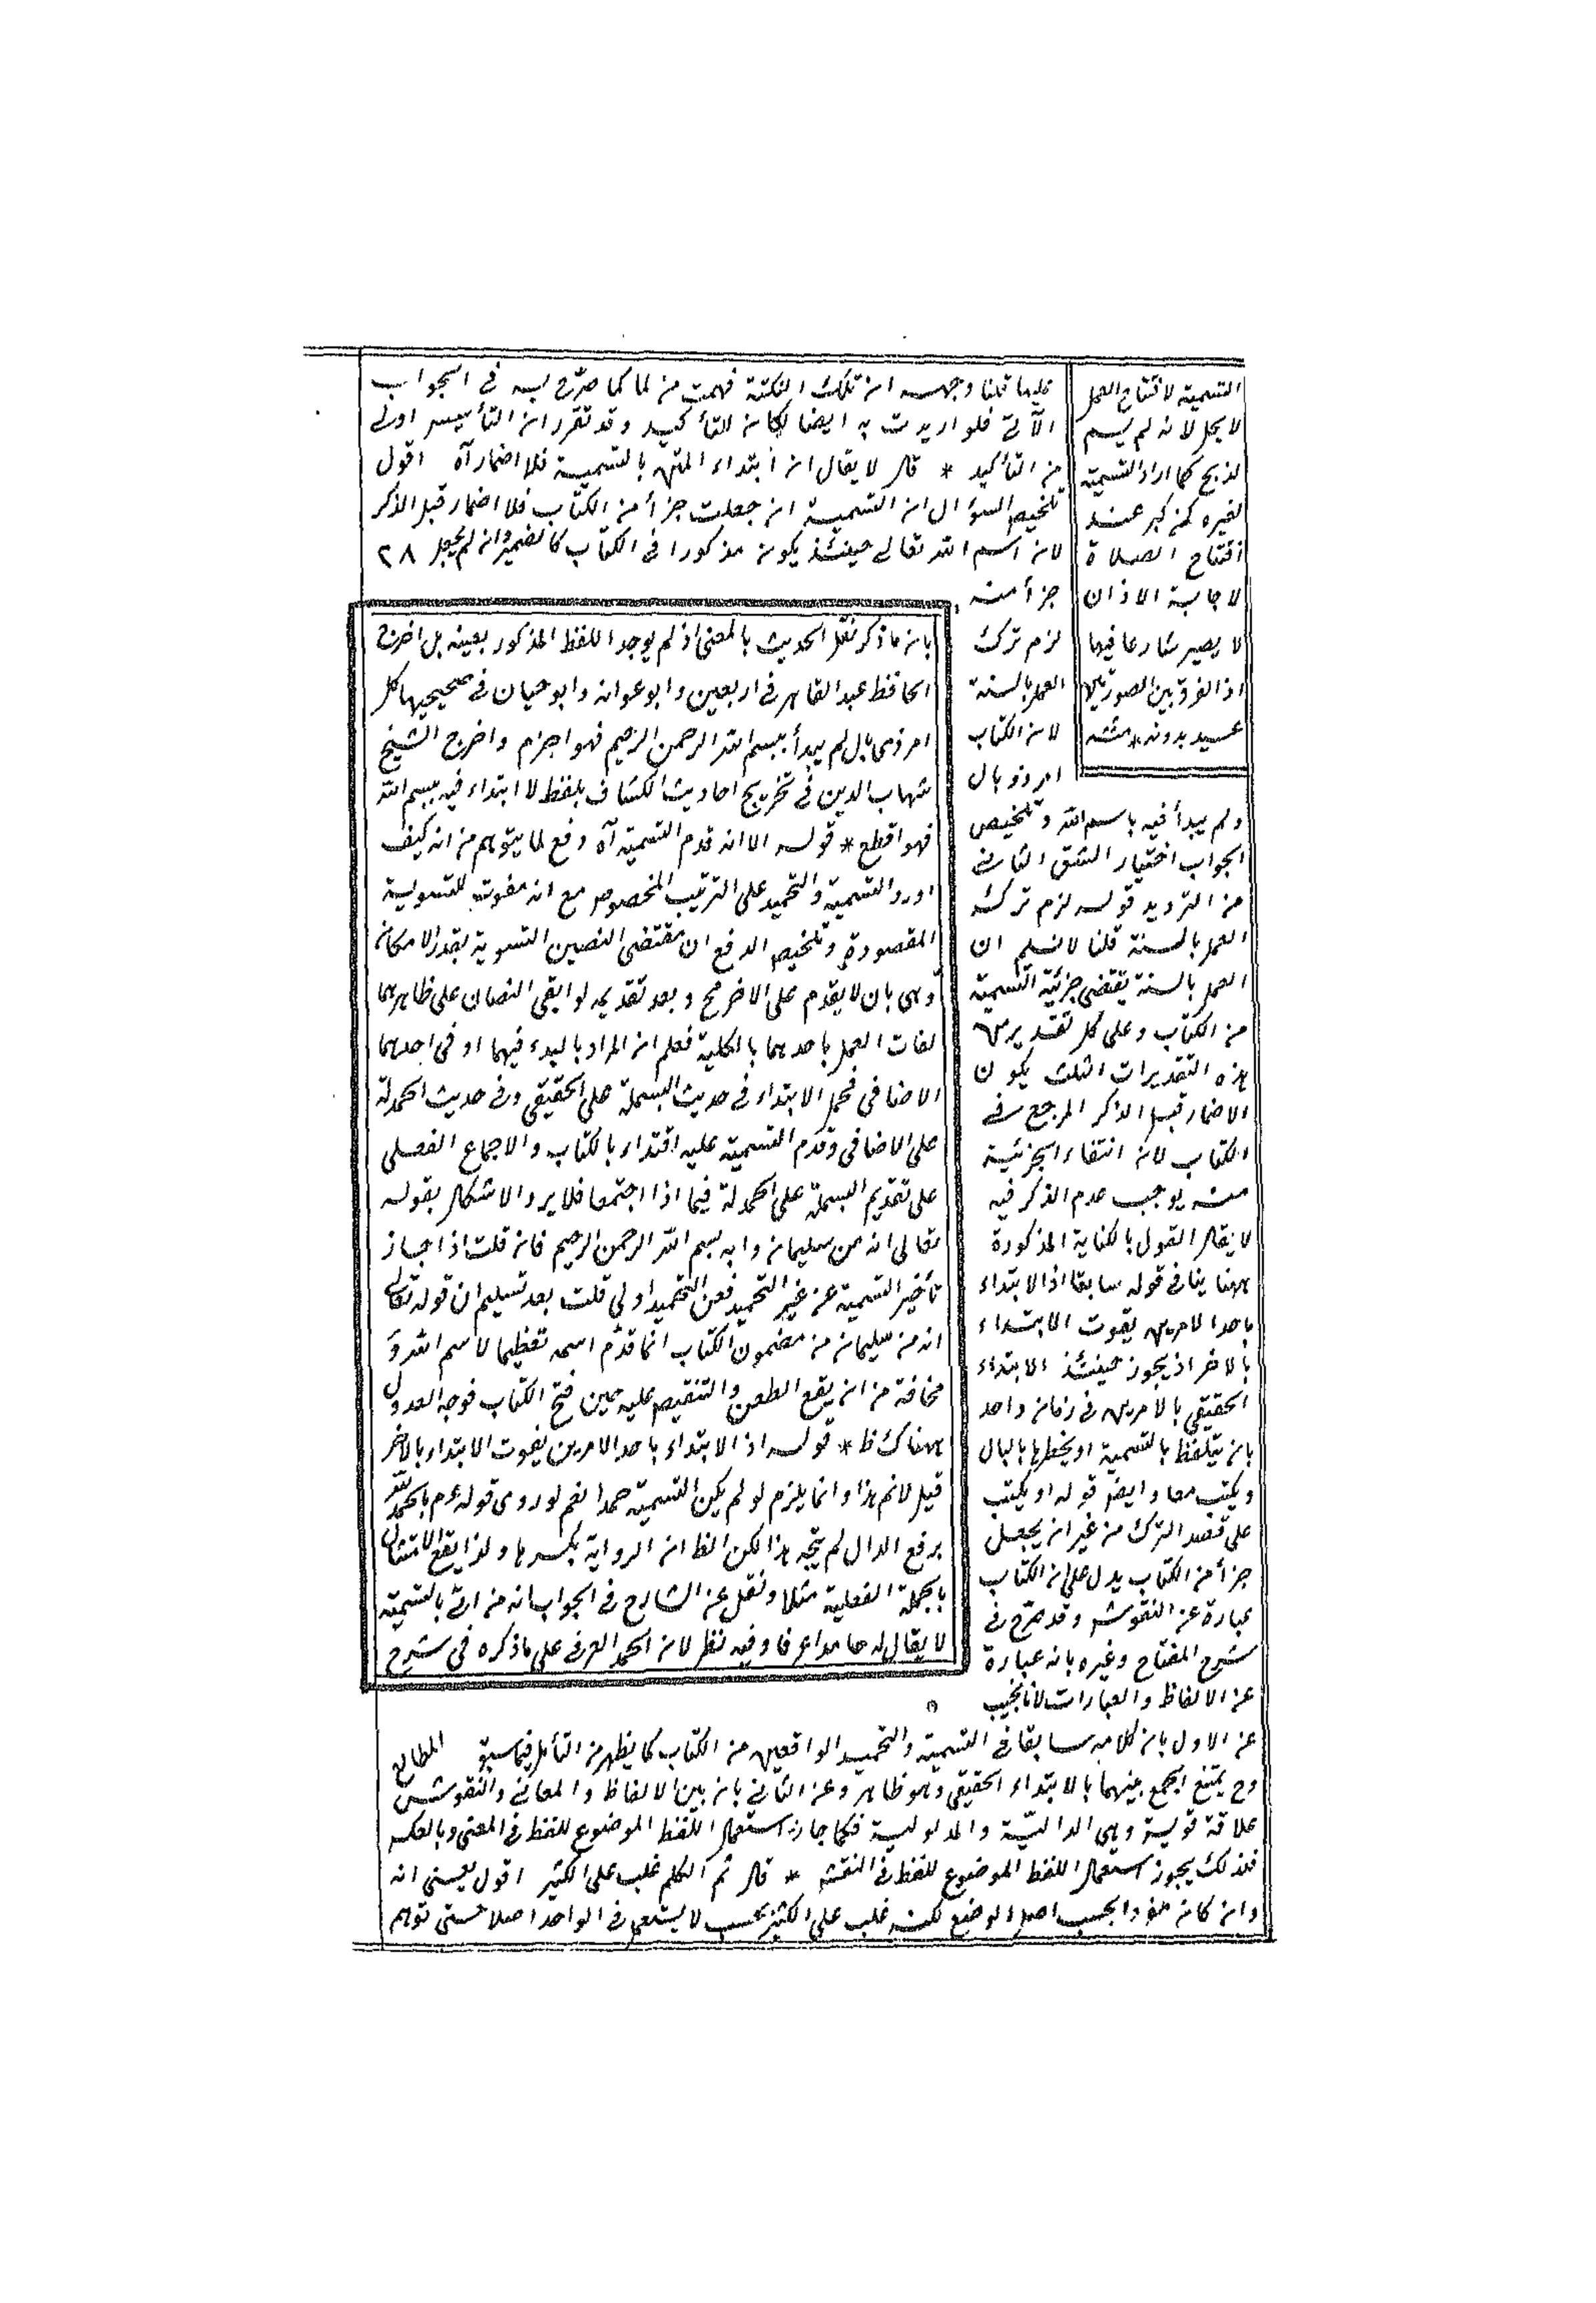 التسمية لافتتاح العمل
لا يحل لانه لم يسم
لذبح كما اراد التسمية
لغيره كمن كبر عند
افتتاح الصلاة
لاجابة الاذان
لا يصير شارعا فيها
اذ الفرق بين الصورتين
بدونه * منه
عليها قلنا وجهه ان تلك النكتة فهمت من لما كما صرّح به فى الجواب
الآتى فلو اريدت به ايضا لكان للتأكيد وقد تقرر ان التأسيس اولى
من التأكيد * قال لا يقال ان ابتداء المتن بالتسمية فلا اضمار آه اقول
تلخيص السؤال ان التسمية ان جعلت جزأ من الكتاب فلا اضمار قبل الذكر
لان اسم الله تعالى حينئذ يكون مذكورا فى الكتاب كالضمير وان لم يجعل ٢٨
جزأ منه
لزم ترك
العمل بالسنة
لان الكتاب
امر ذو بال
ولم يبدأ فيه باسم الله وتلخيص
الجواب اختيار الشق الثانى
من الترديد قوله لزم ترك
العمل بالسنة قلنا لا نسلم ان
العمل بالسنة يقتضى جزئية التسمية
من الكتاب وعلى كل تقدير من
هذه التقديرات الثلث يكون
الاضمار قبل الذكر المرجع فى
الكتاب لان انتفاء الجزئية
منه يوجب عدم الذكر فيه
لا يقال القول بالكناية المذكورة
ههنا ينافى قوله سابقا اذ الابتداء
باحد الامرين يفوت الابتداء
بالاخر اذ يجوز حينئذ الابتداء
الحقيقى بالامرين فى زمان واحد
بان يتلفظ بالتسمية او يخطرها بالبال
ويكتب معا وايضا قوله او يكتب
على قصد الترك من غير ان يجعل
جزأ من الكتاب يدل على ان الكتاب
عبارة عن النقوش وقد صرّح فى
شرح المفتاح وغيره بانه عبارة
عن الالفاظ والعبارات لانا نجيب
عن الاول بان كلامه سابقا فى التسمية والتحميد الواقعين من الكتاب كما يظهر من التأمل فيما سبق
وح يمتنع الجمع بينهما بالابتداء الحقيقى وهو ظاهر وعن الثانى بان بين الالفاظ والمعانى والنقوش
علاقة قوية وهى الدالية والمدلولية فكما جاز استعمال اللفظ الموضوع للفظ فى المعنى وبالعكس
فلذلك يجوز استعمال اللفظ الموضوع للفظ فى النقش * قال ثم الكلم غلب على الكثير اقول يعنى انه
وان كان مفردا بحسب اصل الوضع لكنه غلب على الكثير بحسب لا يستعمل فى الواحد اصلا حتى توهم
بان ما ذكر نقل الحديث بالمعنى اذ لم يوجد اللفظ المذكور بعينه بل اخرج
الحافظ عبد القاهر فى اربعين وابو عوانه وابو حيان فى صحيحيهما كل
امر ذى بال لم يبدأ ببسم الله الرحمن الرحيم فهو اجزم واخرج الشيخ
شهاب الدين فى تخريج احاديث الكشاف بلفظ لا ابتداء فيه ببسم الله
فهو اقطع * قوله الا انه قدم التسمية آه دفع لما يتوهم من انه كيف
اورد التسمية والتحميد على الترتيب المخصوص مع انه مفوت للتسوية
المقصودة وتلخيص الدفع ان مقتضى النصين التسوية بقدر الامكان
وهى بان لا يقدم على الاخر مح وبعد تقديمه لو ابقى النصان على ظاهرهما
لفات العمل باحدهما بالكلية فعلم ان المراد بالبدء فيهما او فى احدهما
الاضافى فحمل الابتداء فى حديث البسملة على الحقيقى وفى حديث الحمدلة
على الاضافى وقدم التسمية عليه اقتداء بالكتاب والاجماع الفعلى
على تقديم البسملة على الحمدلة فيما اذا اجتمعا فلا يرد الاشكال بقوله
تعالى انه من سليمان وانه بسم الله الرحمن الرحيم فان قلت اذا جاز
تأخير التسمية عن غير التحميد فعن التحميد اولى قلت بعد تسليم ان قوله تعالى
انه من سليمان من مضمون الكتاب انما قدّم اسمه تعظيما لاسم الله و
مخافة من ان يقع الطعن والتنقيص عليه حين فتح الكتاب فوجه العدول
هناك ظ * قوله اذ الابتداء باحد الامرين يفوت الابتداء بالاخر
قيل لانم هذا وانما يلزم لو لم يكن التسمية حمدا نعم لو روى قوله عم بالحمد لله
برفع الدال لم يتجه هذا لكن الظ ان الرواية بكسرها ولذا يقع الامتثال
بالجملة الفعلية مثلا ونقل عن الشارح فى الجواب انه من اتى بالتسمية
لا يقال له حامد اعرفا وفيه نظر لان الحمد العرفى على ما ذكره فى شرح
المطالع